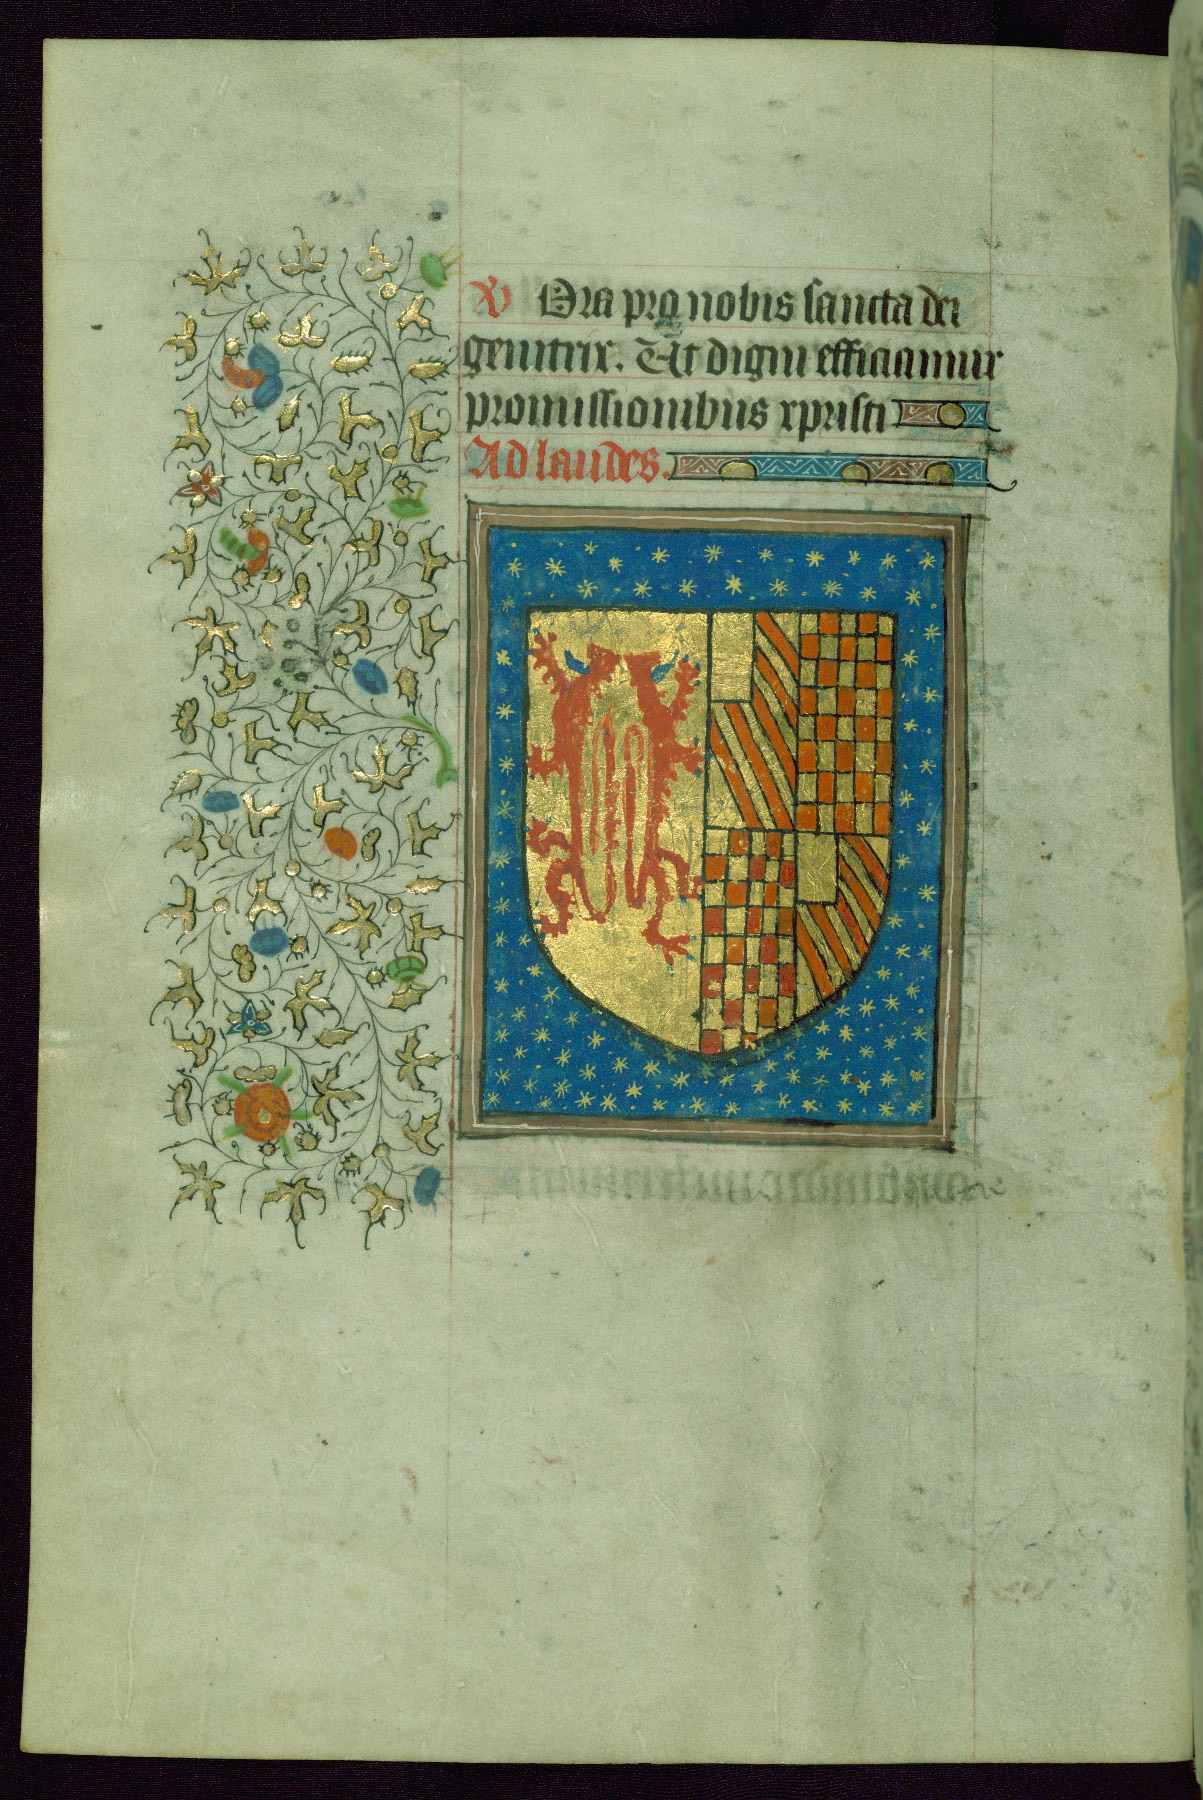 V Ora pro nobis sancta dei
genitrix. Ut digni efficiamur
promissionibus xpristi
Ad laudes.